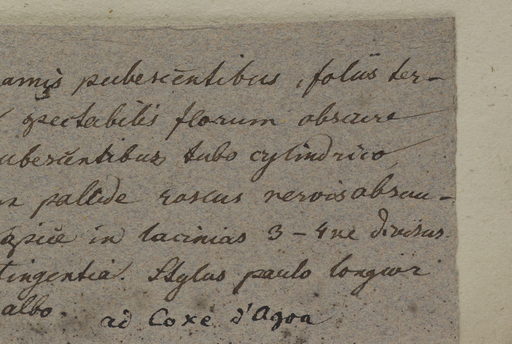 amis pubescentibus, foliis ter-
spectabilis florum obscure
ubescentibus tubo cylindrico
pallide roseus nervis obscu-
apice in lacinias 3-4ne divisus
tingentia. Stylus paulo longior
albo. ad Coxe d'Agoa